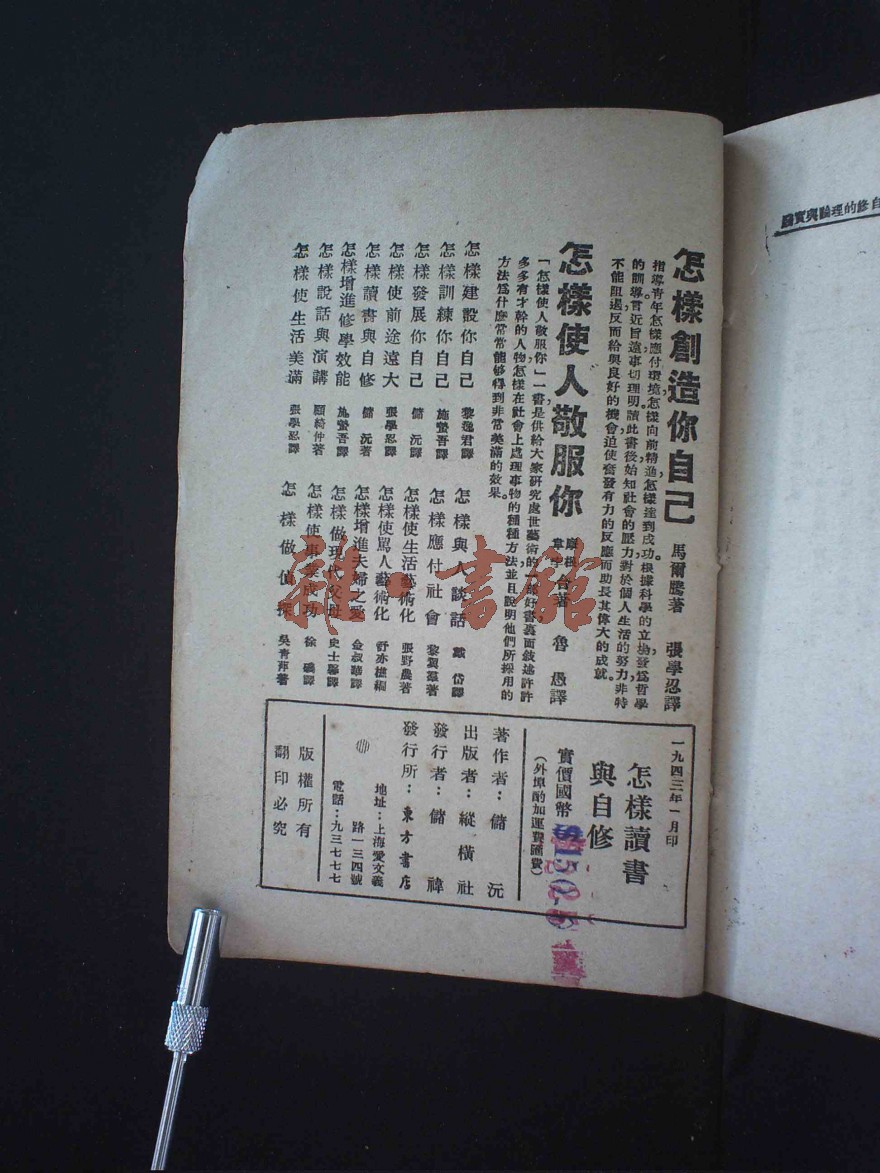 怎樣創造你自己　馬爾騰著　張學忍譯
指導青年怎樣應付環境，怎樣向前精進，怎樣達到成功。根據科學的立場，發爲哲學
的訓導。言近旨遠，事切理明。讀此書後，始知社會的壓力，對於個人生活的努力，非特
不能阻遏，反而給與良好的機會，迫使奮發有力的反應，而助長其偉大的成就。
怎樣使人敬服你　合著　魯愚譯
「怎樣使人敬服你」一書，是供給大家研究處世藝術的一部好書，裏面敘述許許
多多有才幹的人物，怎樣在社會上處理事物的種種方法，並且說明他們所採用的
方法爲什麼常常能够得到非常美滿的效果。
怎樣建設你自己　黎逸君譯
怎樣訓練你自己　施螢吾譯
怎樣發展你自己　儲沅譯
怎樣使前途遠大　張學忍譯
怎樣讀書與自修　儲沅著
怎樣增進修學效能　施螢吾譯
怎樣說話與演講　顧綺仲著
怎樣使生活美滿　張學忍譯
怎樣與人談話　戴岱譯
怎樣應付社會　黎翼羣著
怎樣使生活藝術化　張野農著
怎樣使罵人藝術化　舒亦樵編
怎樣增進夫婦之愛　金淑華譯
怎樣做現代父母　史士譯
怎樣使事業成功　徐譯
怎樣做偵探　吳青萍著
一九四三年一月印
怎樣讀書
與自修
實價國幣
（外埠酌加運費匯費）
著作者：儲沅
出版者：縱橫社
發行者：儲禕
發行所：東方書店
地址：上海愛文義
路一三四號
電話：九三七七七
版權所有
翻印必究
自修的理論與實驗
雜·書館